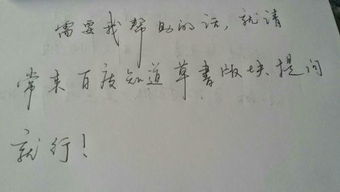 需要我帮助的话，就请
常来百度知道草书版块提问
就行！